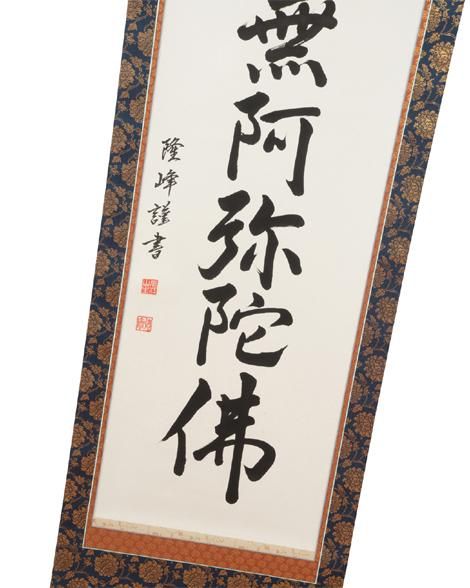 無阿弥陀佛
隆峰謹書